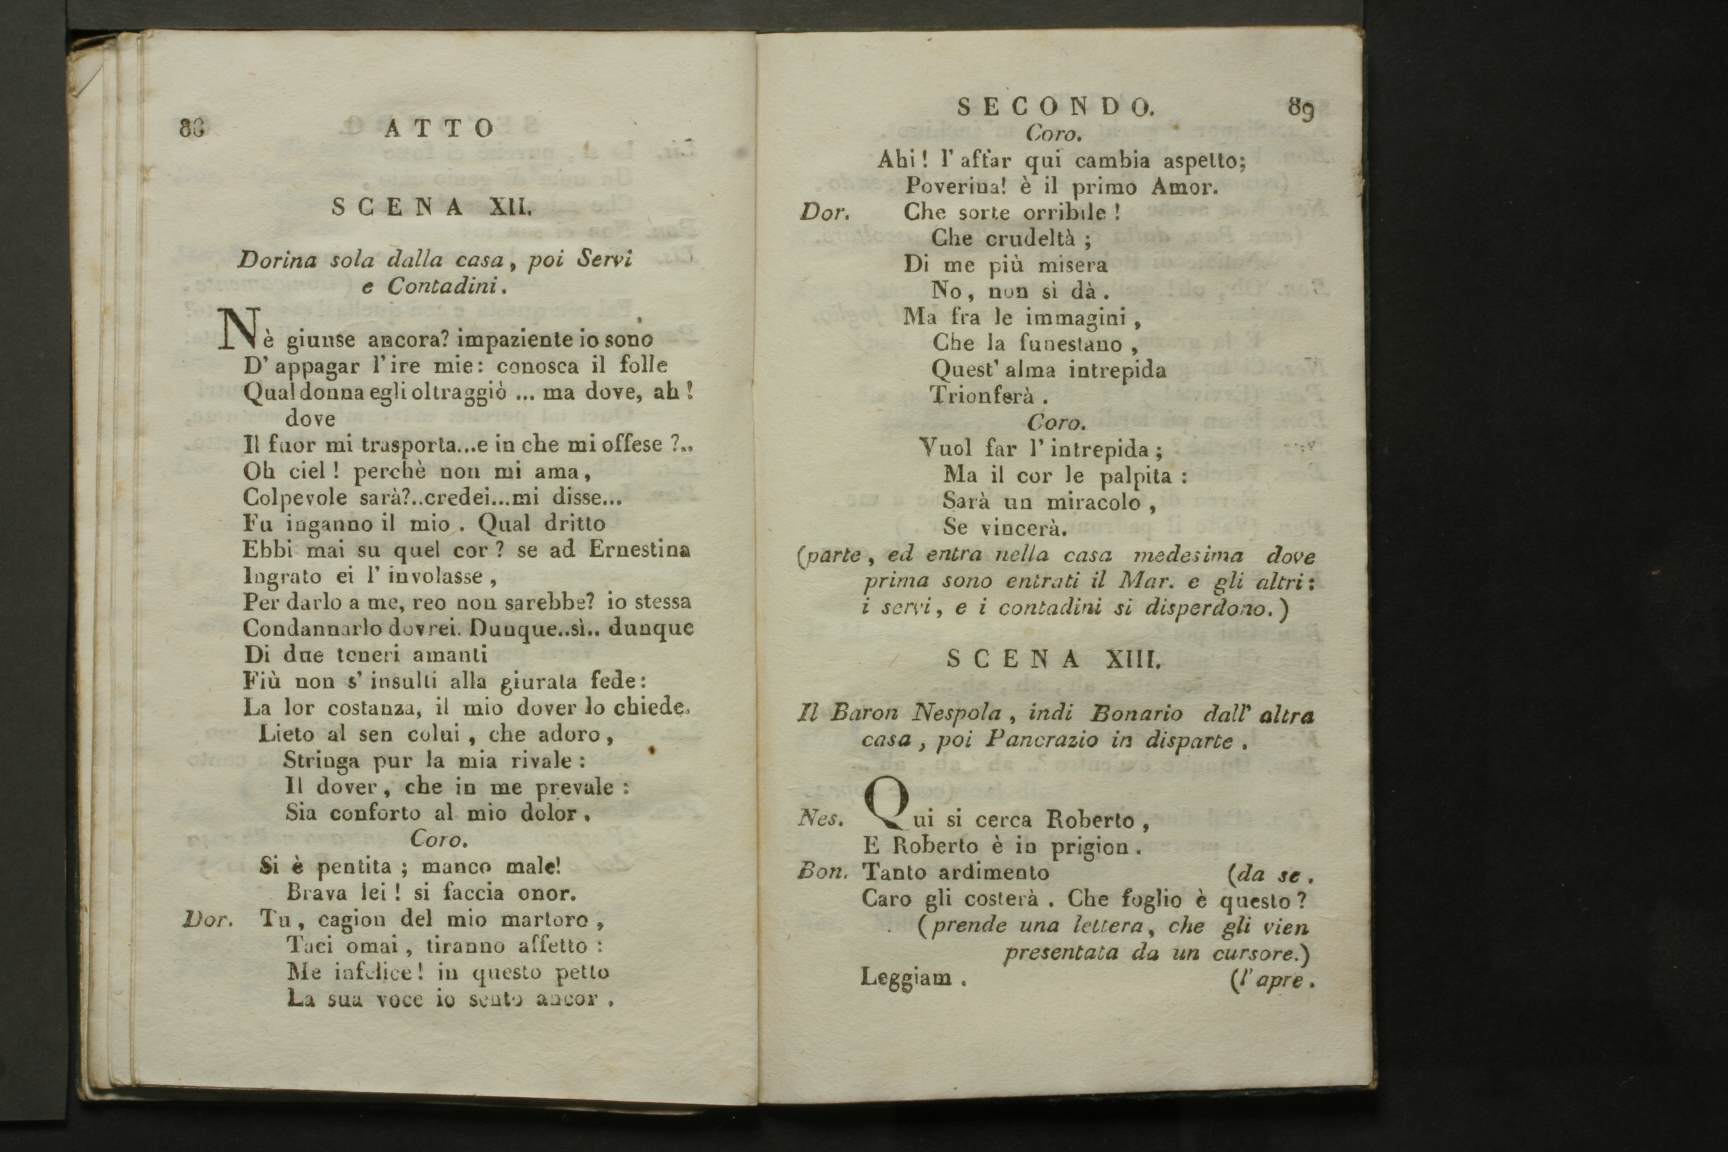 88 ATTO
SCENA XII.
Dorina sola dalla casa, poi Servi
e Contadini.
Nè giunse ancora? impaziente io sono
D' appagar l' ire mie: conosca il folle
Qual donna egli oltraggiò ... ma dove, ah!
dove
Il fuor mi trasporta...e in che mi offese ?..
Oh ciel! perchè non mi ama,
Colpevole sarà?..credei...mi disse...
Fu inganno il mio. Qual dritto
Ebbi mai su quel cor? se ad Ernestina
Ingrato ei l' involasse,
Per darlo a me, reo non sarebbe? io stessa
Condannarlo dovrei. Dunque..sì.. dunque
Di due teneri amanti
Più non s' insulti alla giurata fede:
La lor costanza, il mio dover lo chiede.
Lieto al sen colui, che adoro,
Stringa pur la mia rivale:
Il dover, che in me prevale:
Sia conforto al mio dolor.
Coro.
Si è pentita; manco male!
Brava lei! si faccia onor.
Dor. Tu, cagion del mio martoro,
Taci omai, tiranno affetto:
Me infelice! in questo petto
La sua voce io sento ancor.
SECONDO. 89
Coro.
Ahi! l' affar qui cambia aspetto;
Poverina! è il primo Amor.
Dor. Che sorte orribile!
Che crudeltà;
Di me più misera
No, non si dà.
Ma fra le immagini,
Che la funestano,
Quest' alma intrepida
Trionferà.
Coro.
Vuol far l' intrepida;
Ma il cor le palpita:
Sarà un miracolo,
Se vincerà.
(parte, ed entra nella casa medesima dove
prima sono entrati il Mar. e gli altri:
i servi, e i contadini si disperdono.)
SCENA XIII.
Il Baron Nespola, indi Bonario dall' altra
casa, poi Pancrazio in disparte.
Nes. Qui si cerca Roberto,
E Roberto è in prigion.
Bon. Tanto ardimento (da se.
Caro gli costerà. Che foglio è questo?
(prende una lettera, che gli vien
presentata da un cursore.)
Leggiam. (l' apre.